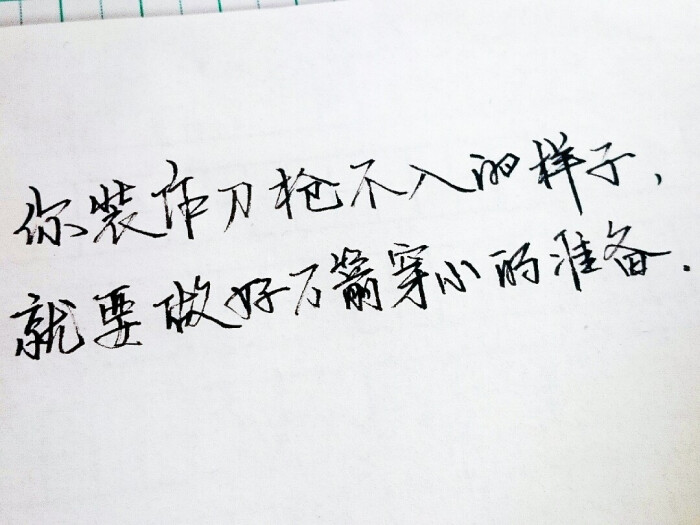 你装作刀枪不入的样子,
就要做好万箭穿心的准备.